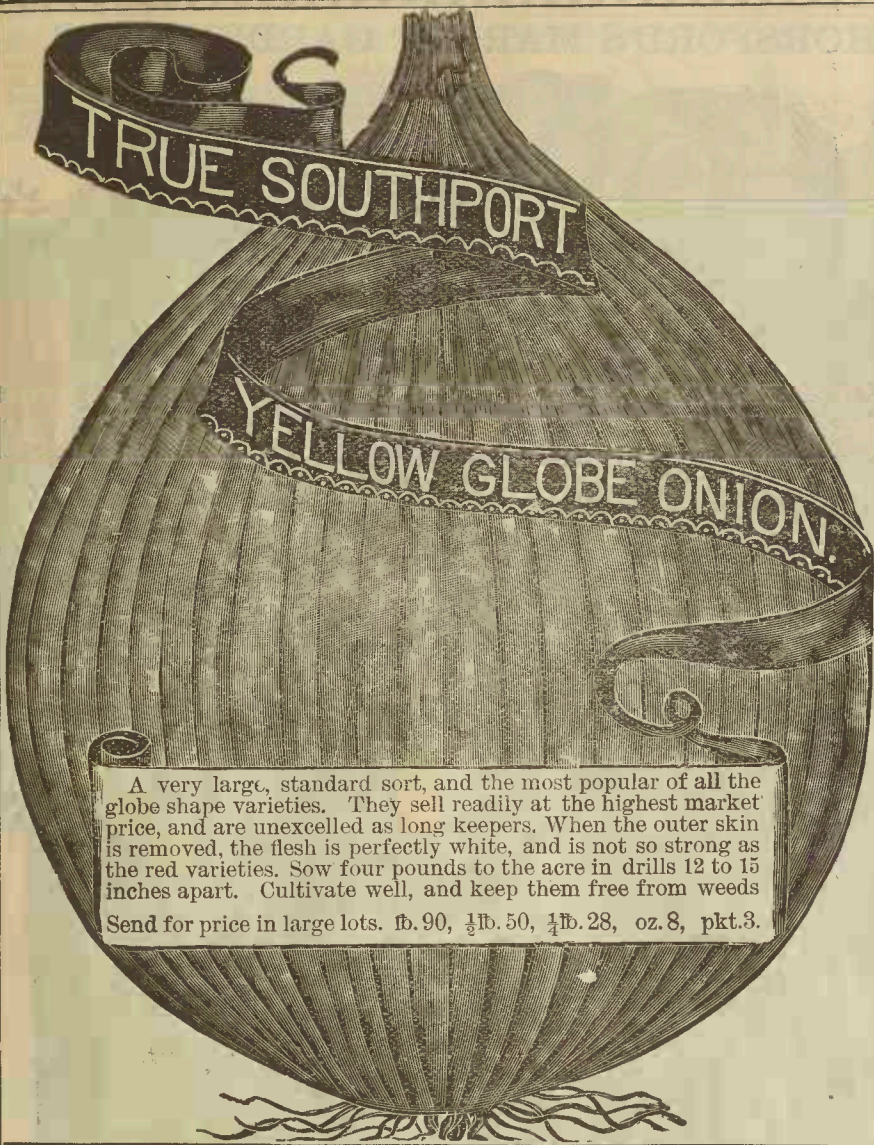 TRUE SOUTHPORT
YELLOW GLOBE ONION.
A very large, standard sort, and the most popular of all the
globe shape varieties. They sell readily at the highest market
price, and are unexcelled as long keepers. When the outer skin
is removed, the flesh is perfectly white, and is not so strong as
the red varieties. Sow four pounds to the acre in drills 12 to 15
inches apart. Cultivate well, and keep them free from weeds
Send for price in large lots. ℔. 90, ½℔. 50, ¼℔. 28, oz. 8, pkt. 3.